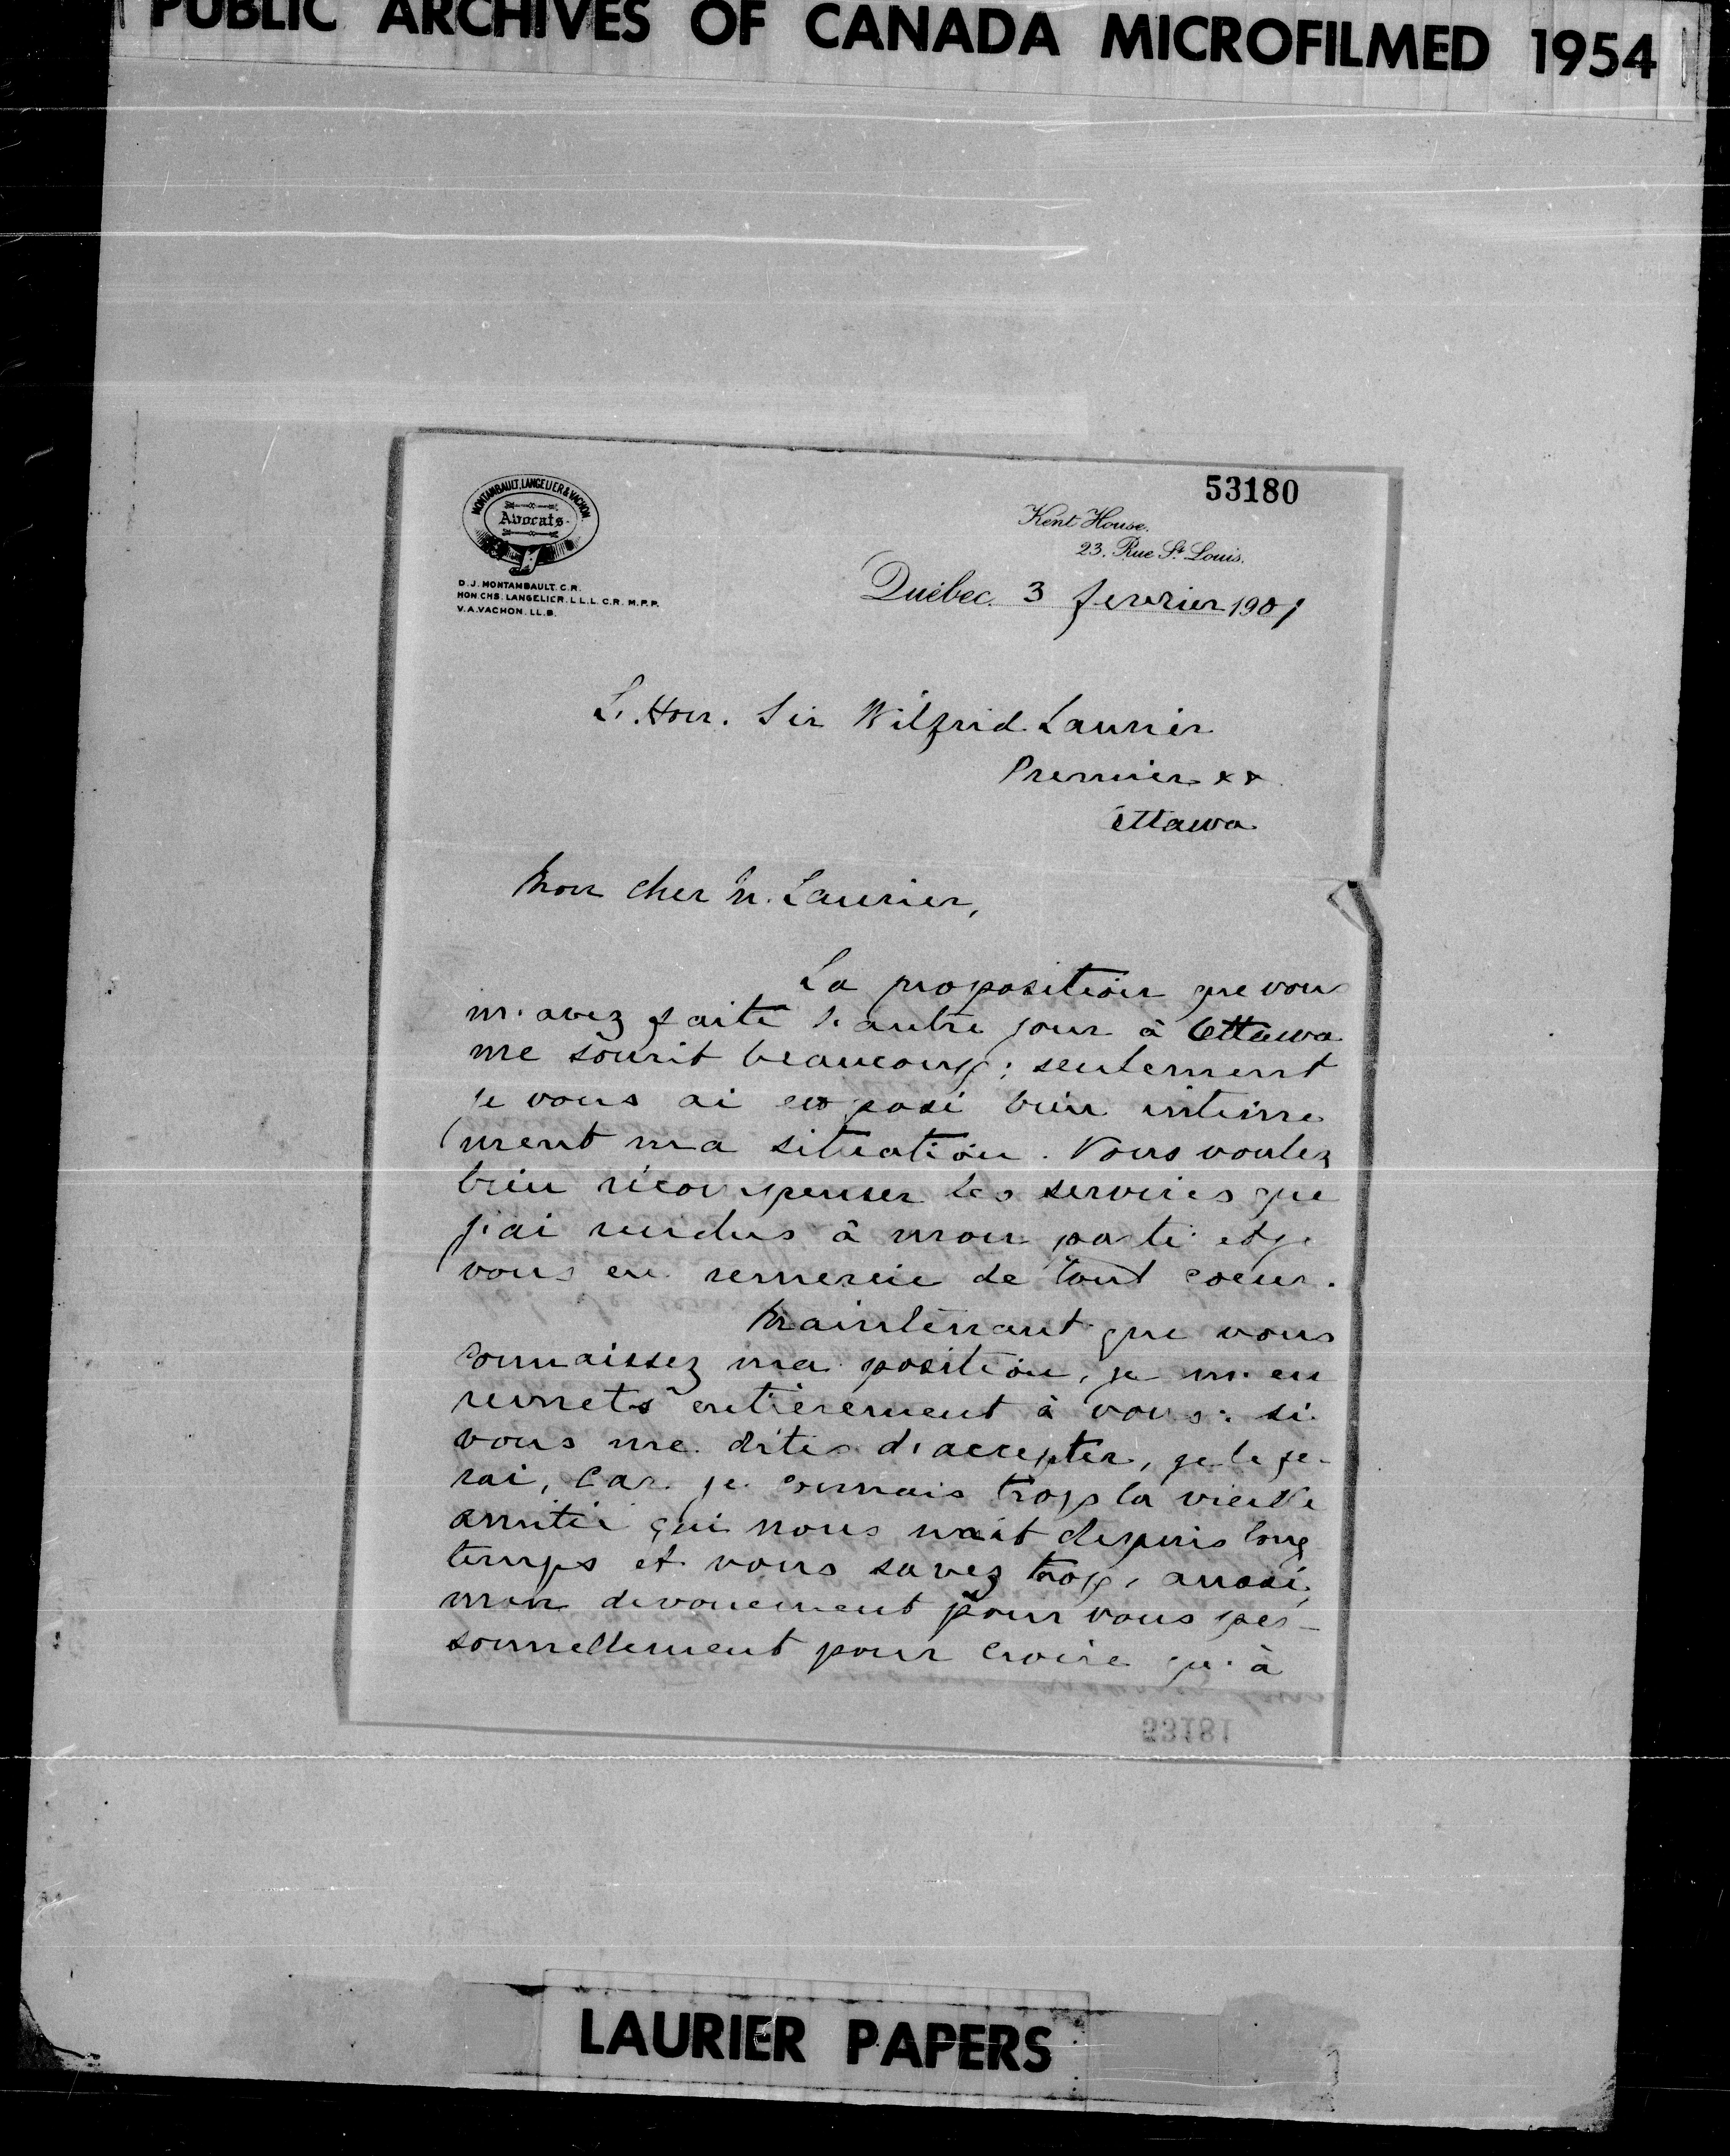 PUBLIC ARCHIVES OF CANADA MICROFILMED 1954
53180
MONTAMBAULT, LANGELIER & VACHON
Avocats
D.J. MONTAMBAULT. C.R.
HON. CHS. LANGELIER. L.L.L. C.R. M.P.P.
V.A. VACHON. LL.B.
Kent House.
23. Rue St. Louis.
Québec. 3 fevrier 1901
L'Hon. Sir Wilfrid Laurier
Premier &&
Ottawa
Mon cher M. Laurier,
La proposition que vous
m'avez faite l'autre jour à Ottawa
me sourit beaucoup; seulement
je vous ai exposé bien intime
ment ma situation. Vous voulez
bien récompenser les services que
j'ai rendus à mon parti et je
vous en remercie de tout coeur.
Maintenant que vous
connaissez ma position, je m'en
remets entièrement à vous: si
vous me dites d'accepter, je le fe-
rai, car je connais trop la vieille
amitié qui nous unit depuis long
temps et vous savez trop, aussi,
mon dévouement pour vous per-
sonnellement pour croire qu'à
53181
LAURIER PAPERS